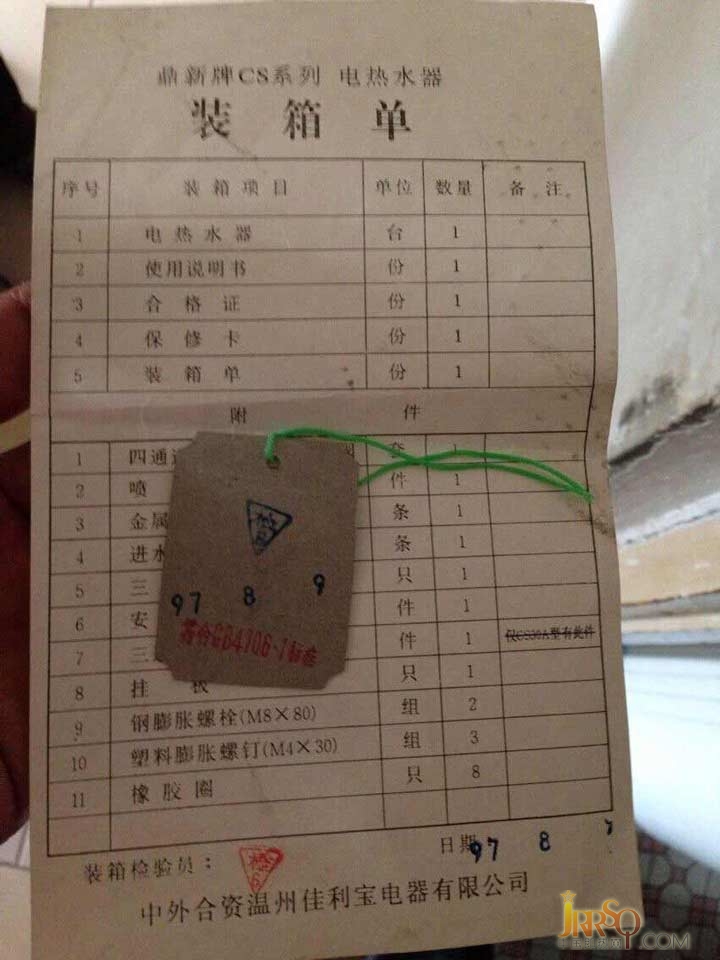 鼎新牌CS系列 电热水器
装箱单
序号 装箱项目 单位 数量 备注
1 电热水器 台 1
2 使用说明书 份 1
3 合格证 份 1
4 保修卡 份 1
5 装箱单 份 1
附件
1 四通 套 1
2 喷 件 1
3 金属 条 1
4 进水 条 1
5 三 只 1
6 安 件 1
7 三 件 1 仅CS30A型有此件
8 挂板 只 1
9 钢膨胀螺栓(M8×80) 组 2
10 塑料膨胀螺钉(M4×30) 组 3
11 橡胶圈 只 8
97 8 9
符合GB4706·1标准
装箱检验员: 日期97 8
中外合资温州佳利宝电器有限公司
JRRSQ
.COM